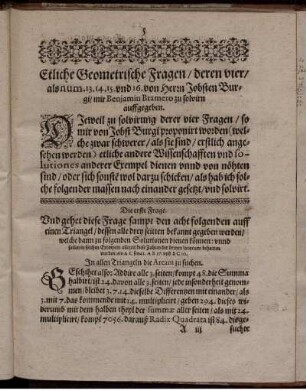 5
Etliche Geometrische Fragen / deren vier /
als num. 13. 14. 15 vnd 16. von Herrn Jobsten Bur-
gi / mir Benjamin Bramero zu solvirn
auffgegeben.
DJeweil zu solvirung derer vier Fragen / so
mir von Jobst Burgi proponirt worden ( wel-
che zwar schwerer / als sie sind / erstlich ange-
sehen werden ) etliche andere Wissenschafften vnd so-
lutiones anderer Exempel dienen vnnd von nöhten
sind / oder sich sonste wol darzu schicken / als hab ich sol-
che folgender massen nach einander gesetzt / vnd solvirt.
Die erste Frage.
Vnd gehet diese Frage sampt den acht folgenden auff
einen Triangel / dessen alle drey seitten bekannt gegeben werden /
welche dann zu folgenden Solutionen dienen können: vnnd
In allen Trianglen die Aream zu suchen.
GEschihet also: Addire alle 3. seiten / kompt 48. die Summa
halbirt / ist 24. davon alle 3. seiten / jede insonderheit genom-
men / bleibet 3. 7. 14. dieselbe Differenzen mit einander / als
3. mit 7. das kommende mit 14. multiplicirt / geben 294. dieses wi-
derumb mit dem halben theyl der summa aller seiten / als mit 24.
multiplicirt / kompt 7056. darauß Radix Quadrata ist 84. die ge-
A iij
suchte